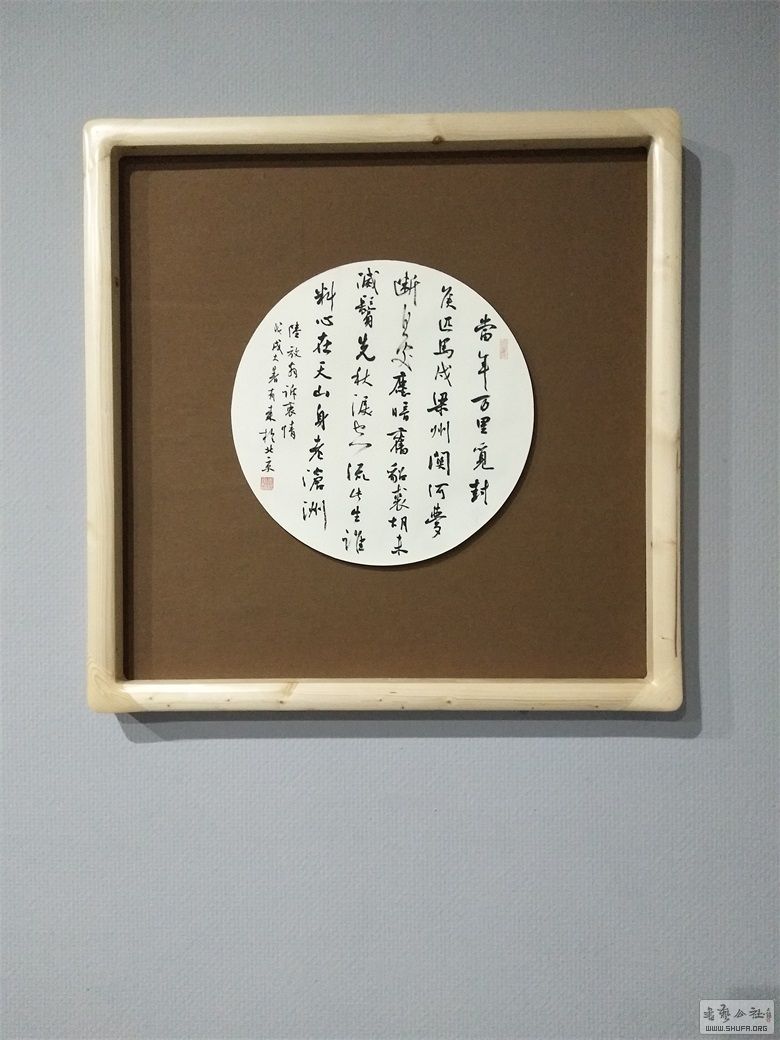 當年万里覓封
侯匹馬戍梁州関河夢
断何處塵暗舊貂裘胡未
滅鬢先秋淚空流此生誰
料心在天山身老滄洲
陸放翁訴衷情
戊戌大暑有来於北京
書藝公社
WWW.SHUFA.ORG